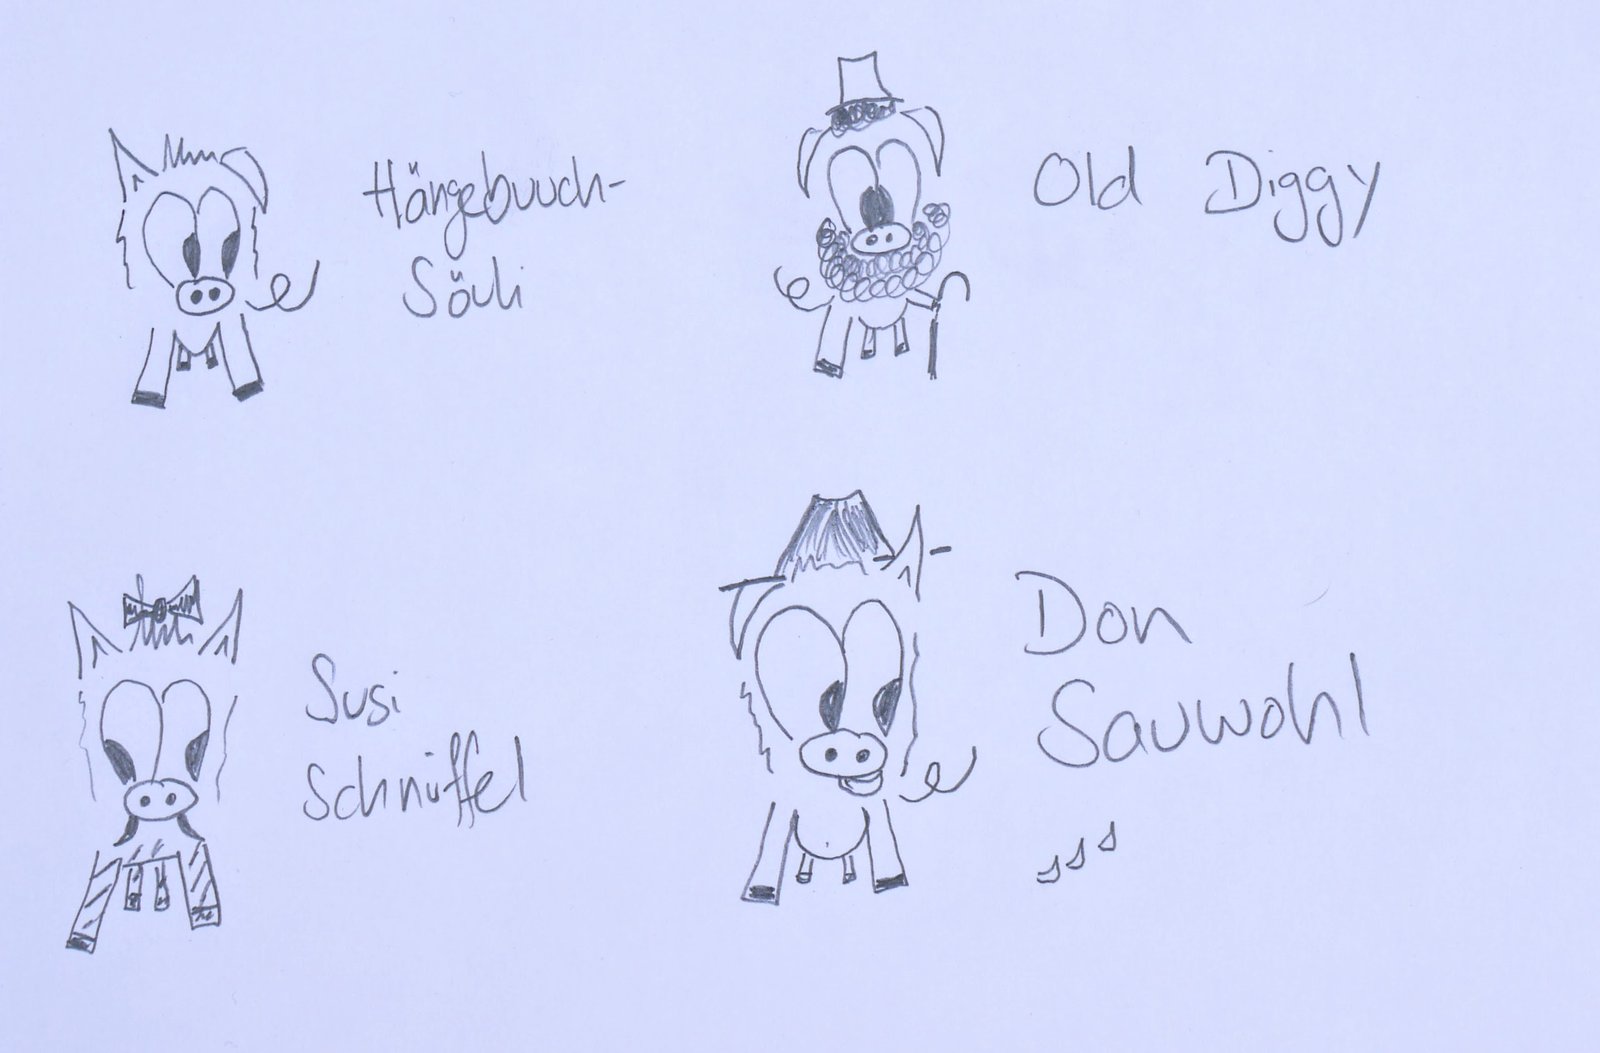 Hängebuuch-
Söuli
Old Diggy
Susi
Schnüffel
Don
Sauwohl